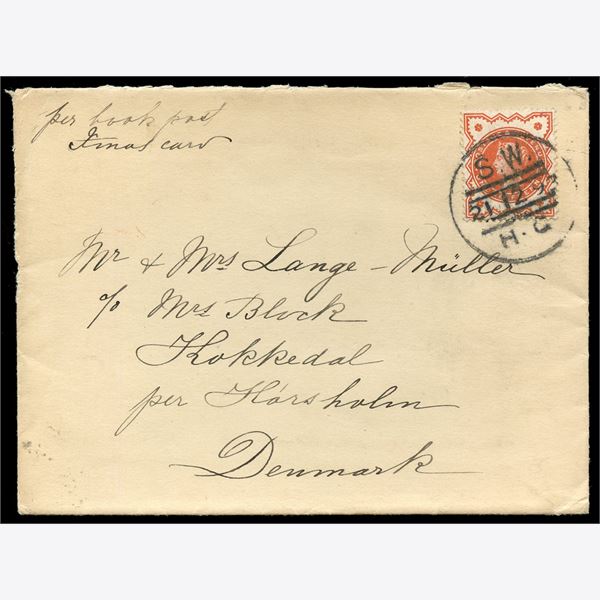 per book post
Xmas card
S.W.
21 12 93
H.C
Mr & Mrs Lange-Müller
c/o Mrs Block
Kokkedal
per Hørsholm
Denmark